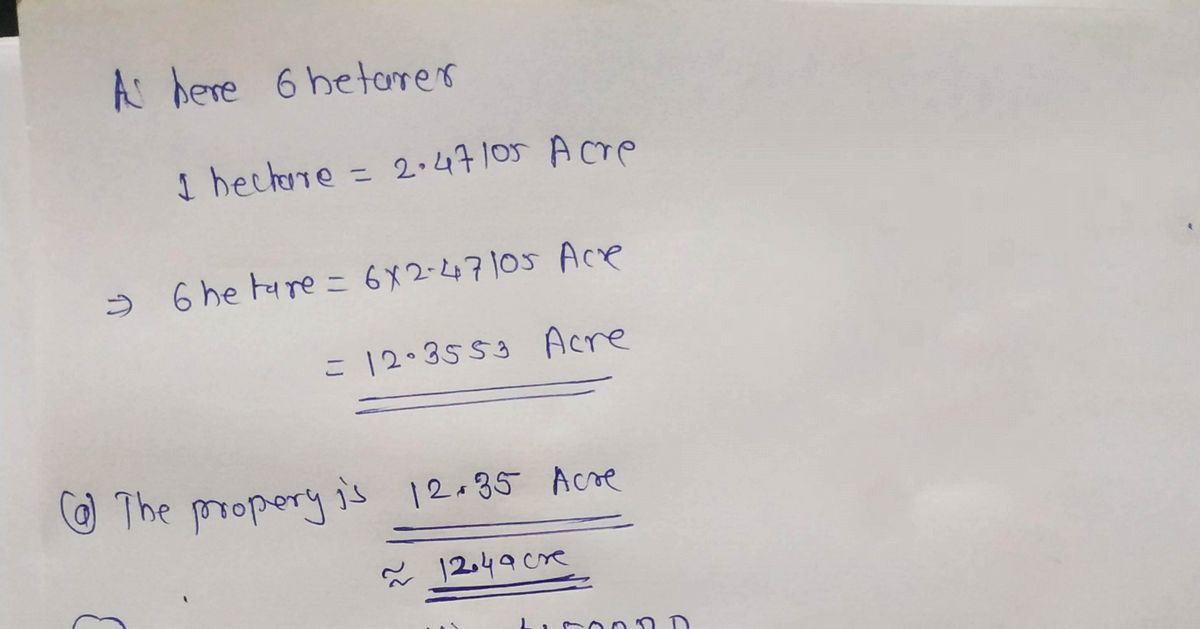 As here 6 hetarer
1 hectare = 2.47105 Acre
⇒ 6 hetare = 6×2.47105 Acre
= 12.3553 Acre
(a) The propery is 12.35 Acre
≈ 12.4 acre